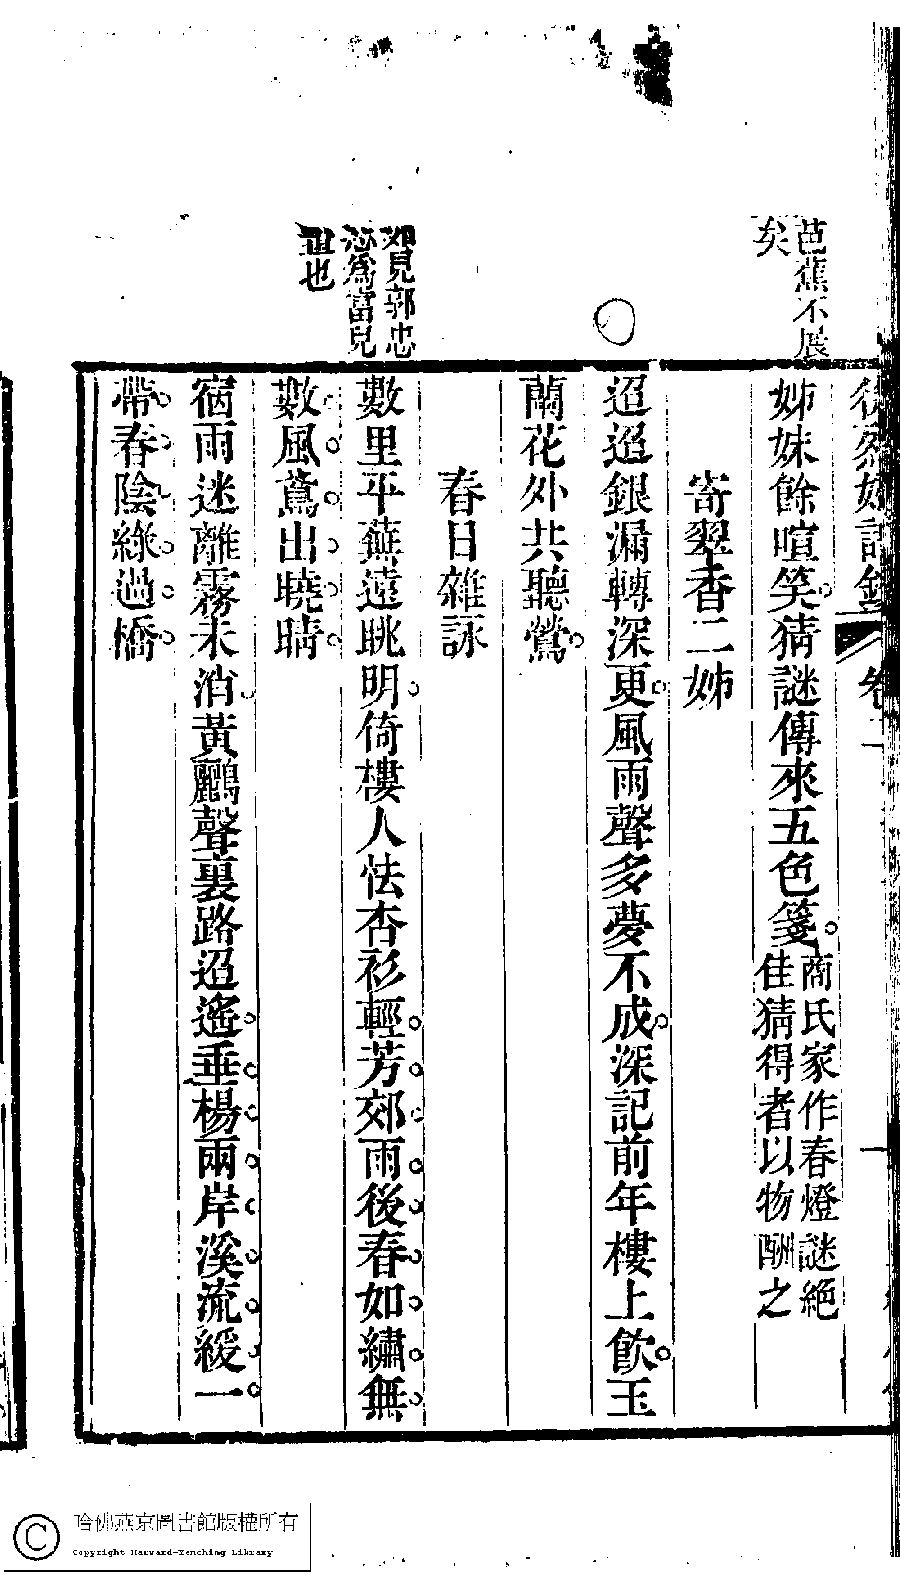 芭蕉不展
矣
姊妹餘喧笑猜謎傳來五色箋商氏家作春燈謎絕
佳猜得者以物酬之
寄翠香二姊
迢迢銀漏轉深更風雨聲多夢不成深記前年樓上飲玉
蘭花外共聽鶯
春日雜詠
如見郭忠
恕為富兒
畫也
數里平蕪遠眺明倚樓人怯杏衫輕芳郊雨後春如繡無
數風鳶出曉晴
宿雨迷離霧未消黃鸝聲裏路迢遙垂楊兩岸溪流緩一
帶春陰綠過橋
哈佛燕京圖書館版權所有
Copyright Harvard-Yenching Library